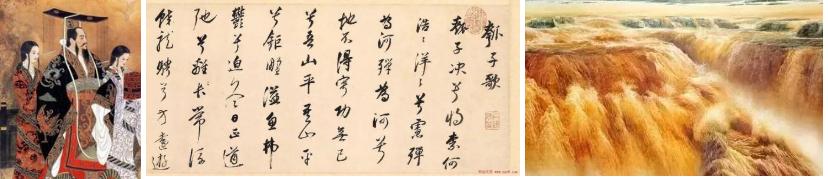 瓠子歌
瓠子決兮將奈何
浩〻洋〻兮慮殫
為河殫為河兮
地不得寧功無已
兮吾山平吾山平
兮鉅野溢魚沸
鬱兮迫冬日正道
弛兮離常流
蛟龍騁兮方遠遊